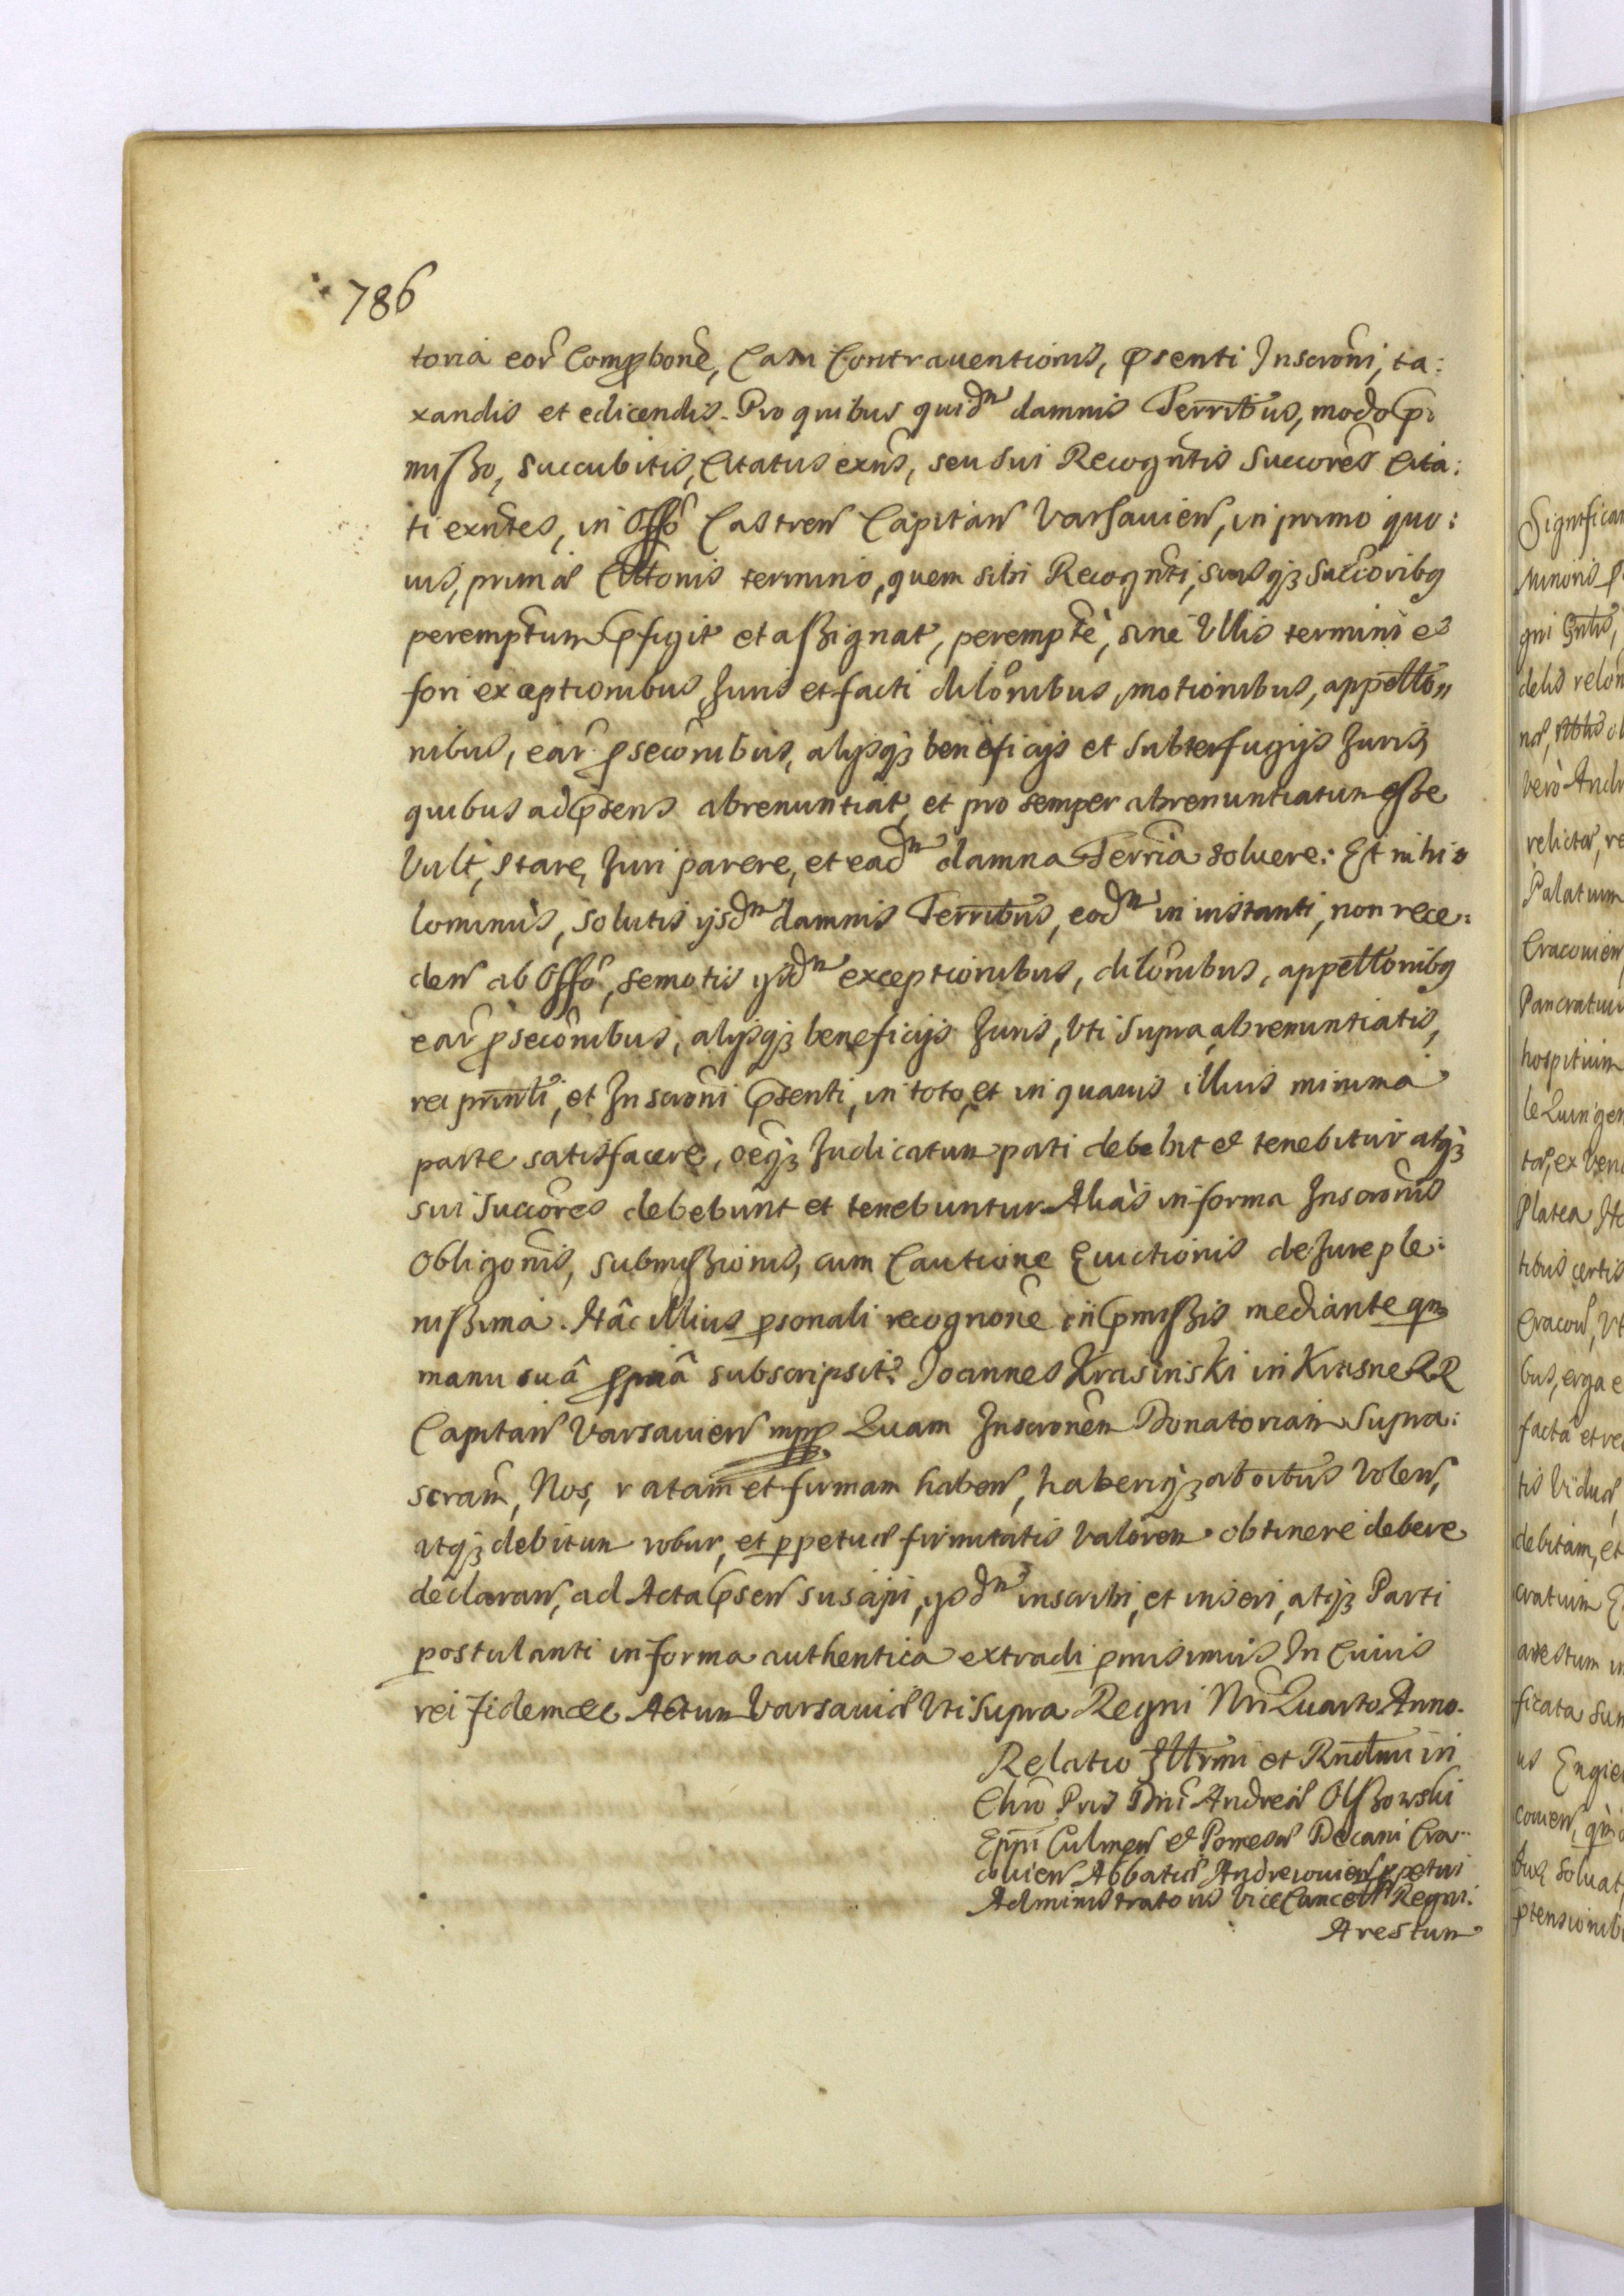 786
toria eor Comprbone, Cam Contrauentionis, psenti Inscroni, ta:
xandis et edicendis. Pro quibus quidm damnis Terribus, modo p:
misso, succubitis, Citatus exns, seu sui Recogntis Succores Cita:
ti exntes, in Offo Castren Capitan Varsauien, in primo quo:
uis, prima Cittonis termino, quem sibi Recognti, suisqz Succoribq
peremptum pfigit et assignat, perempte, sine Ullis termini et
fori exceptionibus, Juris et facti dilonibus, motionibus, appello„
nibus, ear psecunibus, alijsqz beneficijs et Subterfugijs Juris,
quibus ad psens abrenuntiat, et pro semper abrenuntiatum esse
Vult, stare, Juri parere, et eadm damna Terria soluere: Et nihi:
lominus, solutis ijsdm damnis Terribus, eodm in instanti, non rece:
den ab Offo, semotis ijsdm exceptionibus, dilonibus, appellonibq
ear psecunibus, alijsqz beneficijs Juris, Vti supra, abrenuntiatis,
rei prinli, et Inscroni psenti, in toto, et in quauis illius minima
parte satisfacere, oeqz Judicatum pati debebit et tenebitur atqz
sui Succores debebunt et tenebuntur. Alias in forma Inscronis
Obligonis, submissionis, cum Cautione Euictionis de Jure ple:
nissima. Hac illius psonali recognone in pmissis mediante qm
manu sua ppria subscripsit. Joannes Krasinski in Krasne RR
Capitan Varsauien mpp Quam Inscronem Donatoriam Supra:
scram, Nos, ratam et firmam haben, haberiqz ab oibus Volen,
vtqz debitum robur, et ppetua firmitatis Valorem obtinere debere
declaran, ad Acta psen suscipi, ijsdm inscribi, et inseri, atqz Parti
postulanti in forma authentica extradi pmisimus. In Cuius
rei fidem etc Actum Varsauia Vti Supra Regni Nri Quarto Anno.
Relatio Illrmi et Rndmi in
Chro Pris Dni Andrea Olszowski
Eppi Culmen et Pomesan Decani Cra:
couien Abbatia Andreouien ppetui
Administratoris ViceCancell Regni.
Arestum